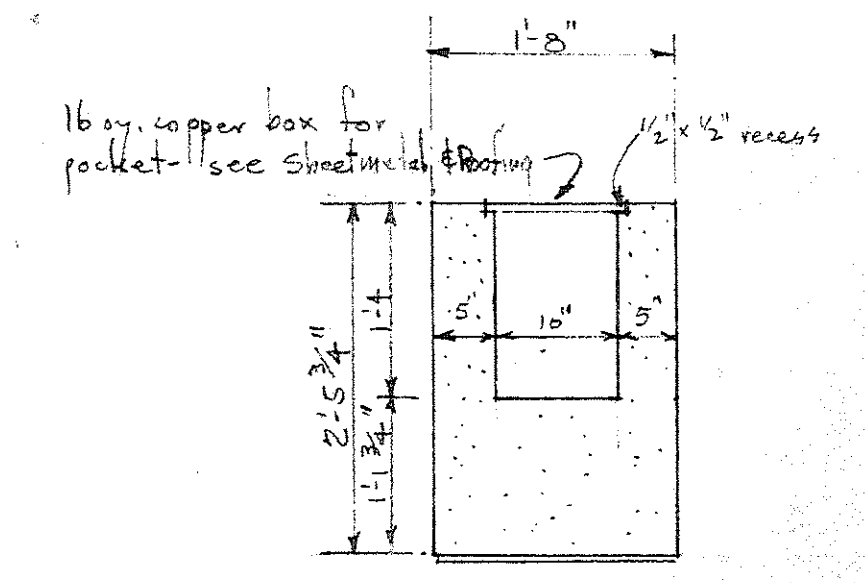 1'-8"
16 oz. copper box for
pocket- see Sheetmetal & Roofing
1/2" x 1/2" recess
1'-4
5"
10"
5"
2'-5 3/4"
1'-1 3/4"